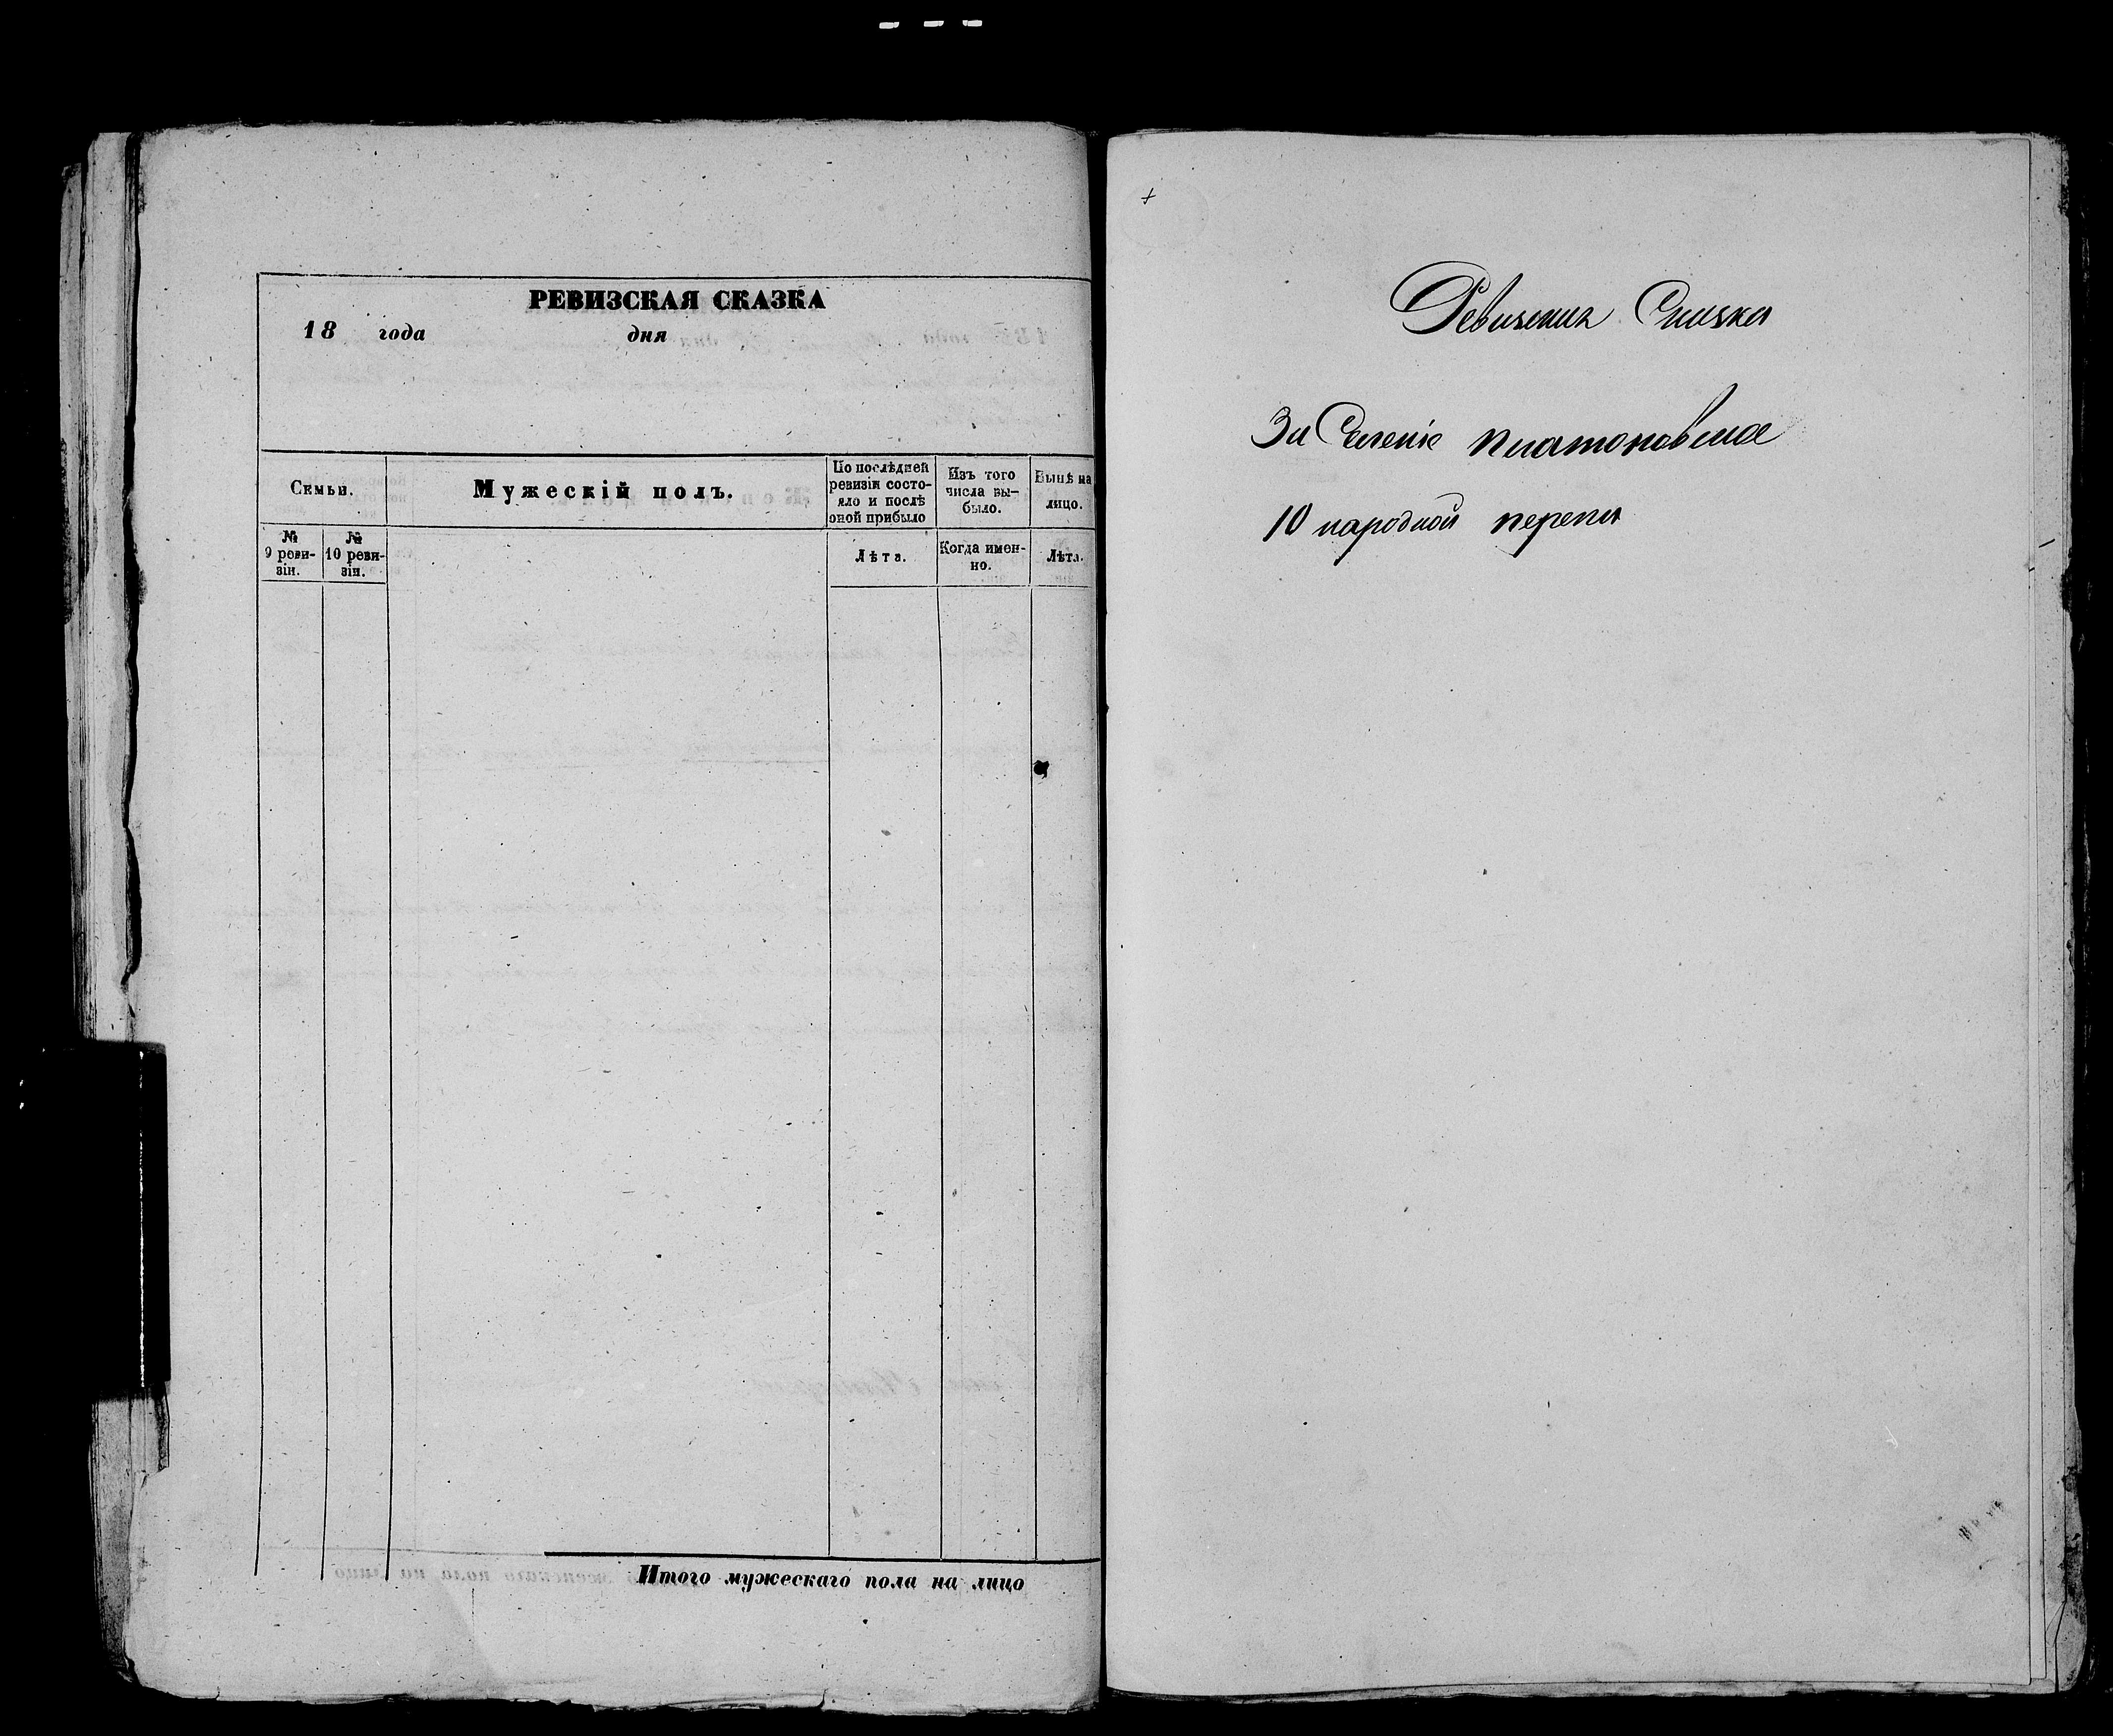 РЕВИЗСКАЯ СКАЗКА
18 года дня
Семьи.
Мужескій полъ.
По послѣдней ревизіи состо-
яло и послѣ
оной прибыло
Изъ того
числа вы-
было.
Нынѣ на
лицо.
№
9 реви-
зіи.
№
10 реви-
зіи.
Лѣта.
Когда имен-
но.
Лѣта.
Итого мужескаго пола на лицо
Ревизская Сказка
За Селеніе Платоновское
10 народной перепи